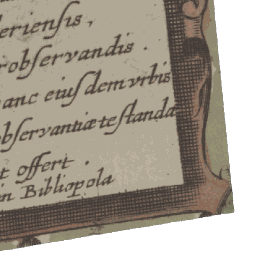 eriensis,
observandis.
anc eius dem vrbis
observantiæ testanda
t offert.
in Bibliopola